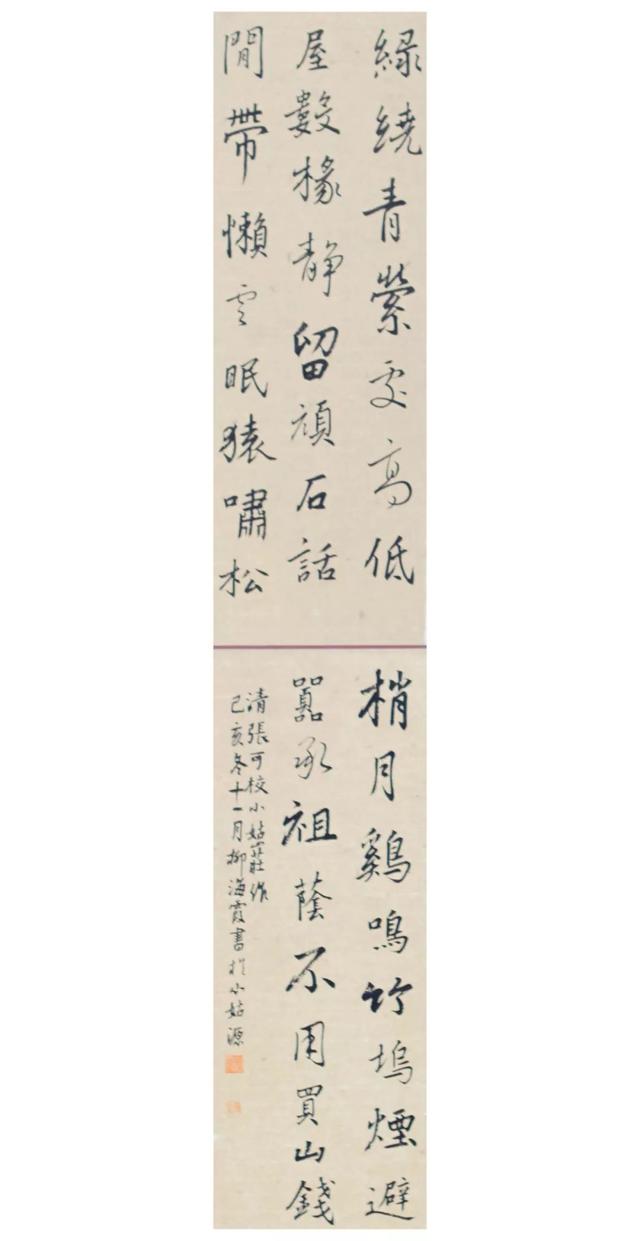 綠繞青縈更高低
屋數椽静留頑石話
閒帶懶雲眠猿嘯松
梢月鷄鳴竹塢煙避
囂承祖蔭不用買山錢
清張可校小姑莊作
己亥冬十一月柳海霞書於小姑源